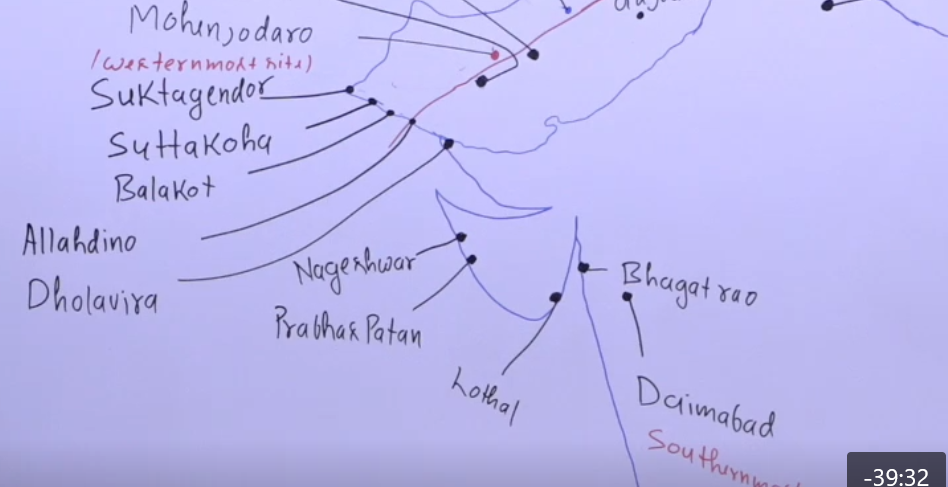 Mohenjodaro
(westernmost site)
Suktagendor
Suttakoha
Balakot
Allahdino
Dholavira
Nageshwar
Prabhas Patan
Lothal
Bhagatrao
Daimabad
-39:32